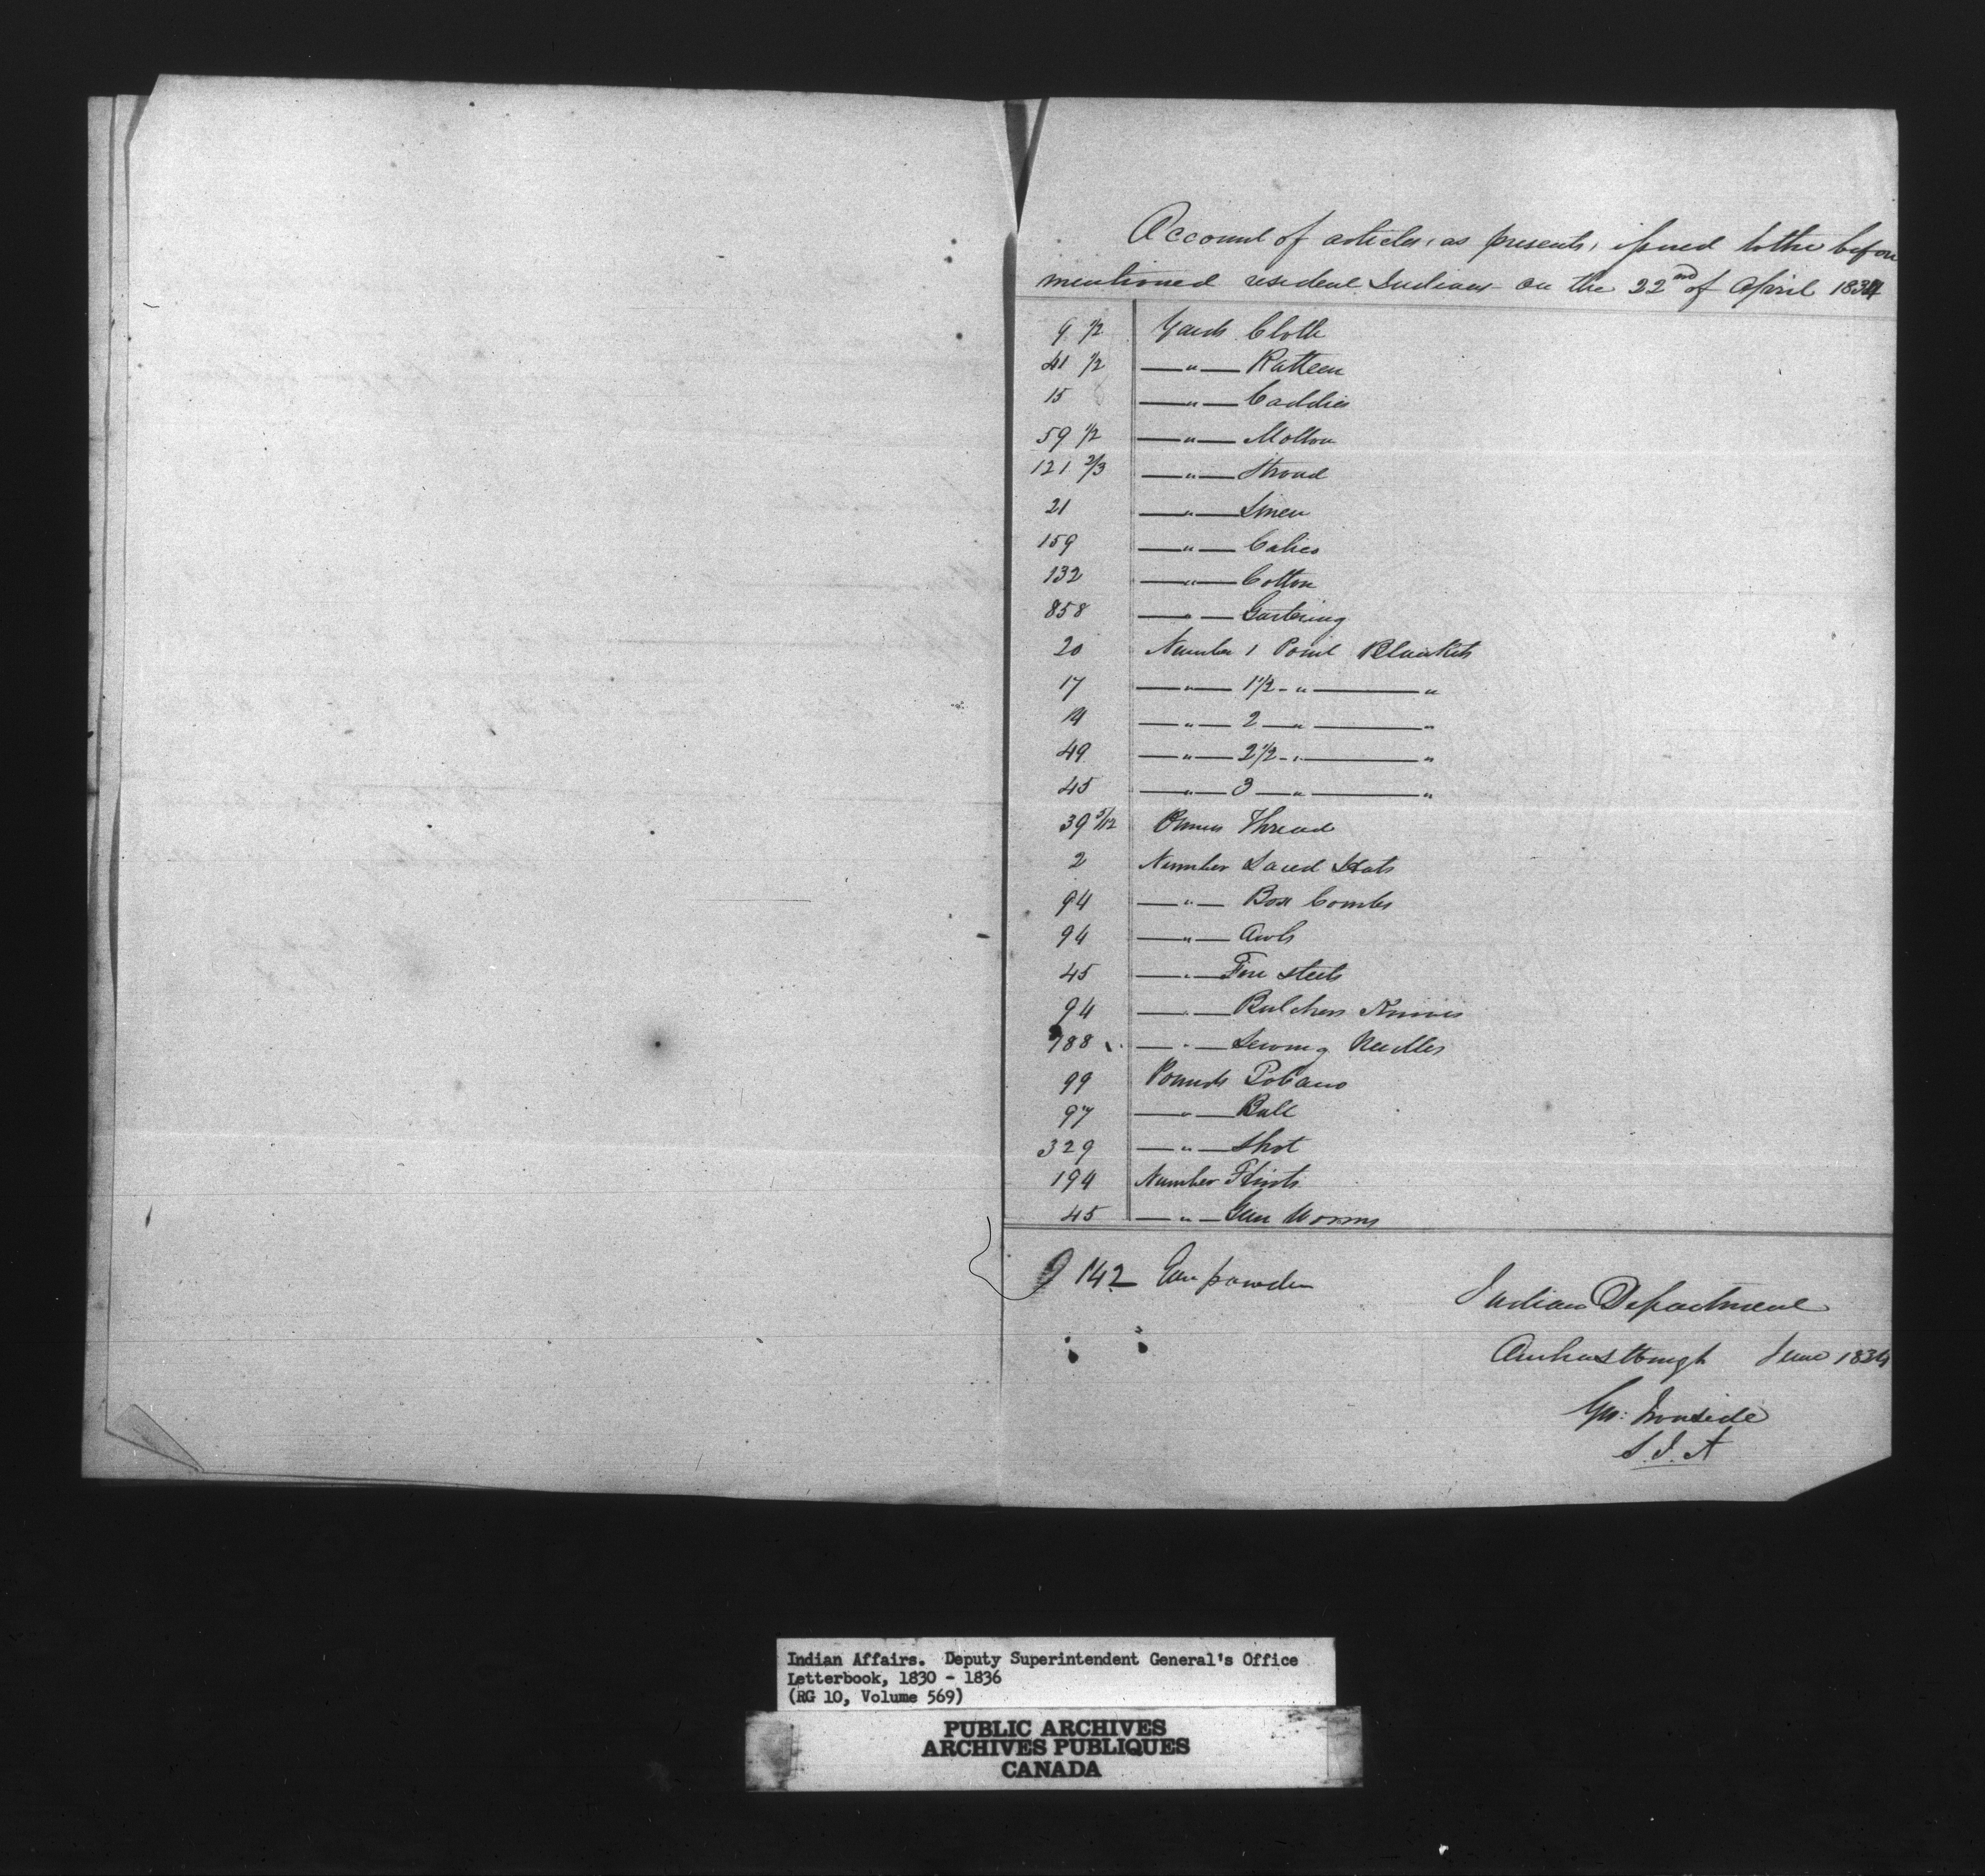 Account of articles, as presents, issued to the before
mentioned resident Indians on the 22nd of April 1834
9 1/2 Yards Cloth
41 1/2 —"— Ratteen
15 —"— Caddies
59 1/2 —"— Molton
121 2/3 —"— Stroud
21 —"— Linen
159 —"— Calico
132 —"— Cotton
858 —"— Gartering
20 Number 1 Point Blankets
17 —"— 1 1/2 - " — "
—"— 2 — " — "
49 —"— 2 1/2 - " — "
45 —"— 3 — " — "
39 5/12 Thread
2 Number Laced Hats
94 —"— Box Combs
94 —"— Awls
45 —"— Fire steels
94 —"— Butchers Knives
—"— Sewing Needles
99 Pounds Tobacco
97 —"— Ball
329 —"— Shot
194 Number Flints
45 —"— Gun Worms
142 Gun powder
Indian Department
Amherstburgh June 1834
Geo: Ironside
S.I.A
Indian Affairs. Deputy Superintendent General's Office
Letterbook, 1830 - 1836
(RG 10, Volume 569)
PUBLIC ARCHIVES
ARCHIVES PUBLIQUES
CANADA